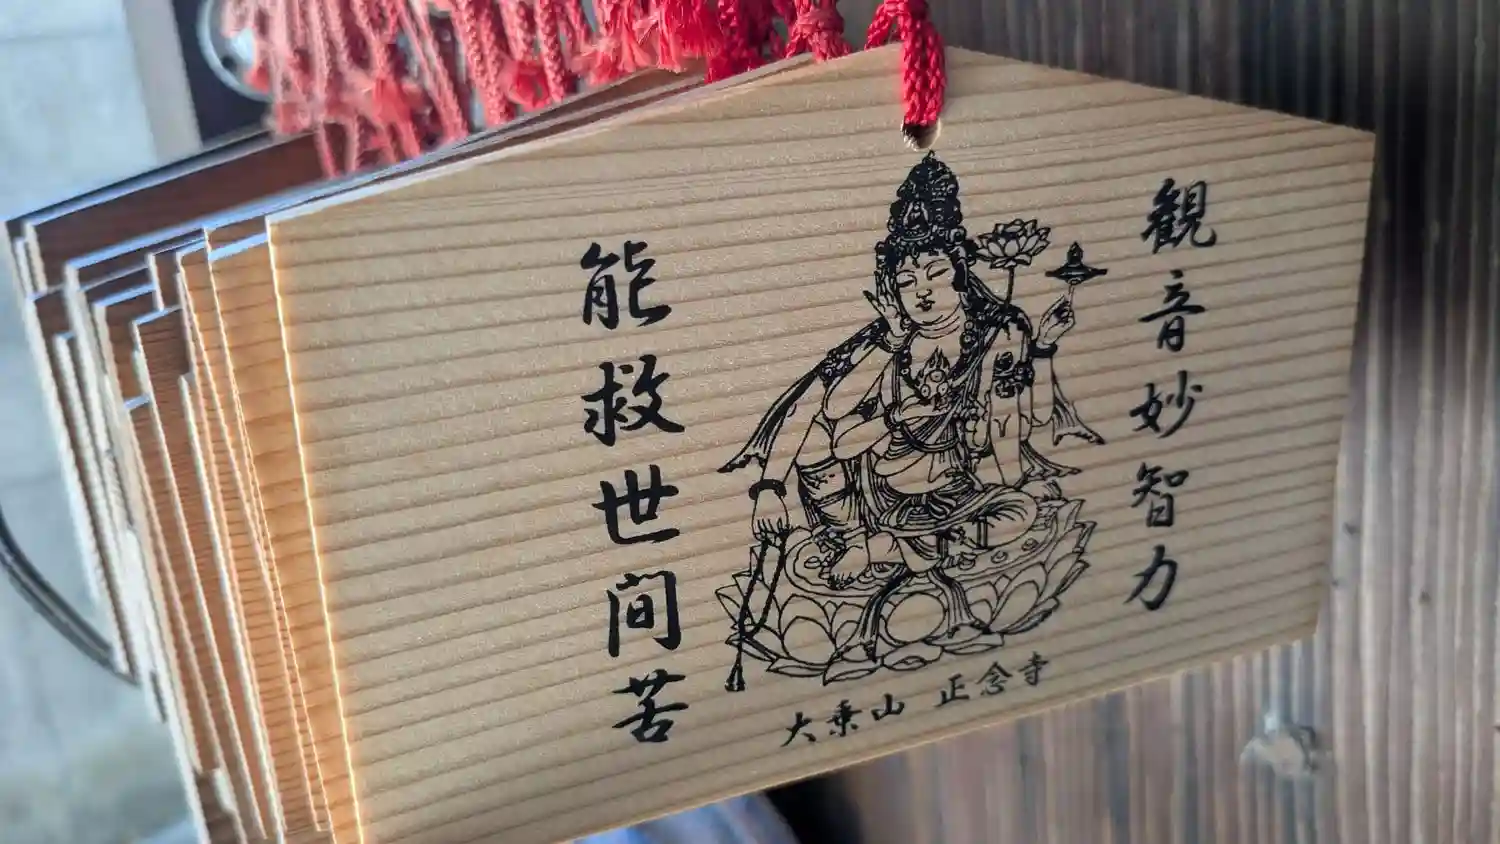 観音妙智力
能救世間苦
大乗山 正念寺